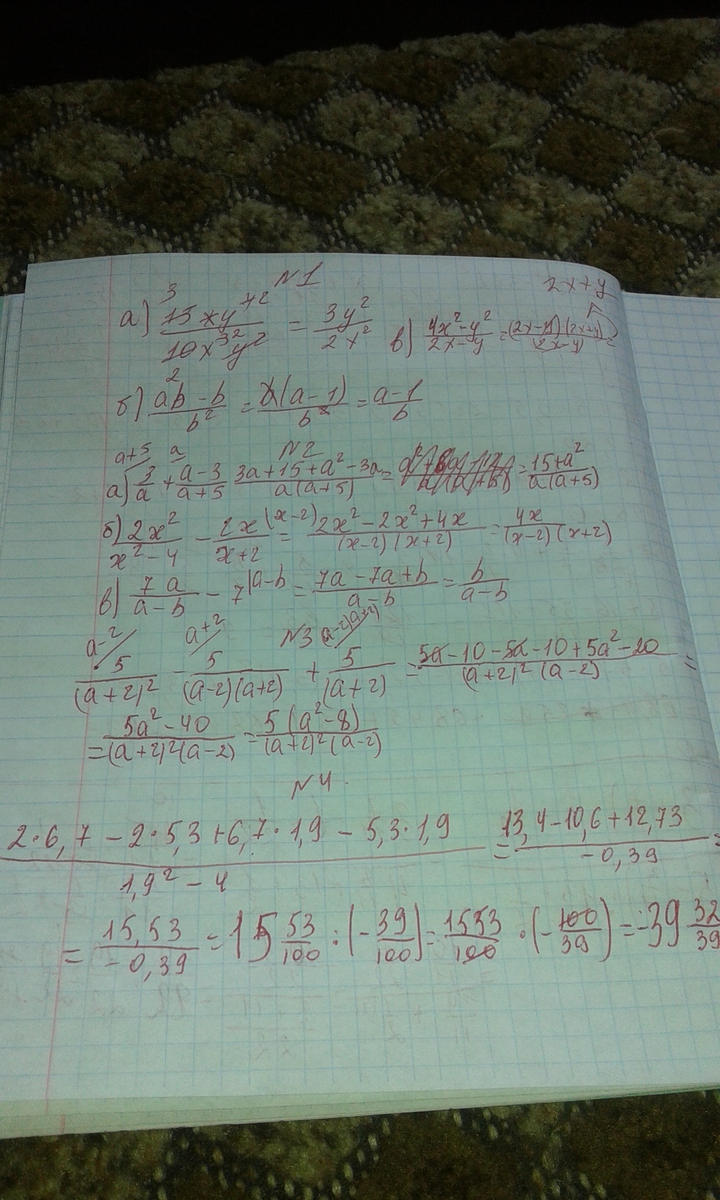 №1
а) 15xy⁴/10x³y² = 3y²/2x² в) 4x²-y²/2x-y = (2x-y)(2x+y)/2x-y) = 2x+y
б) ab-b/b² = b(a-1)/b² = a-1/b
№2
а) 3/a + a-3/a+5 3a+15+a²-3a/a(a+5) = = 15+a²/a(a+5)
б) 2x²/x²-4 - 2x/x+2 (x-2) = 2x²-2x²+4x/(x-2)(x+2) = 4x/(x-2)(x+2)
в) 7a/a-b - 7 |a-b = 7a-7a+b/a-b = b/a-b
№3
a-2 a+2 (a-2)(a+2)
5/(a+2)² - 5/(a-2)(a+2) + 5/(a+2) = 5a-10-5a-10+5a²-20/(a+2)²(a-2) =
= 5a²-40/(a+2)²(a-2) = 5(a²-8)/(a+2)²(a-2)
№4.
2·6,7 - 2·5,3 + 6,7·1,9 - 5,3·1,9/1,9²-4 = 13,4-10,6+12,73/-0,39 =
= 15,53/-0,39 = 15 53/100 : (-39/100) = 1553/100 · (-100/39) = -39 32/39